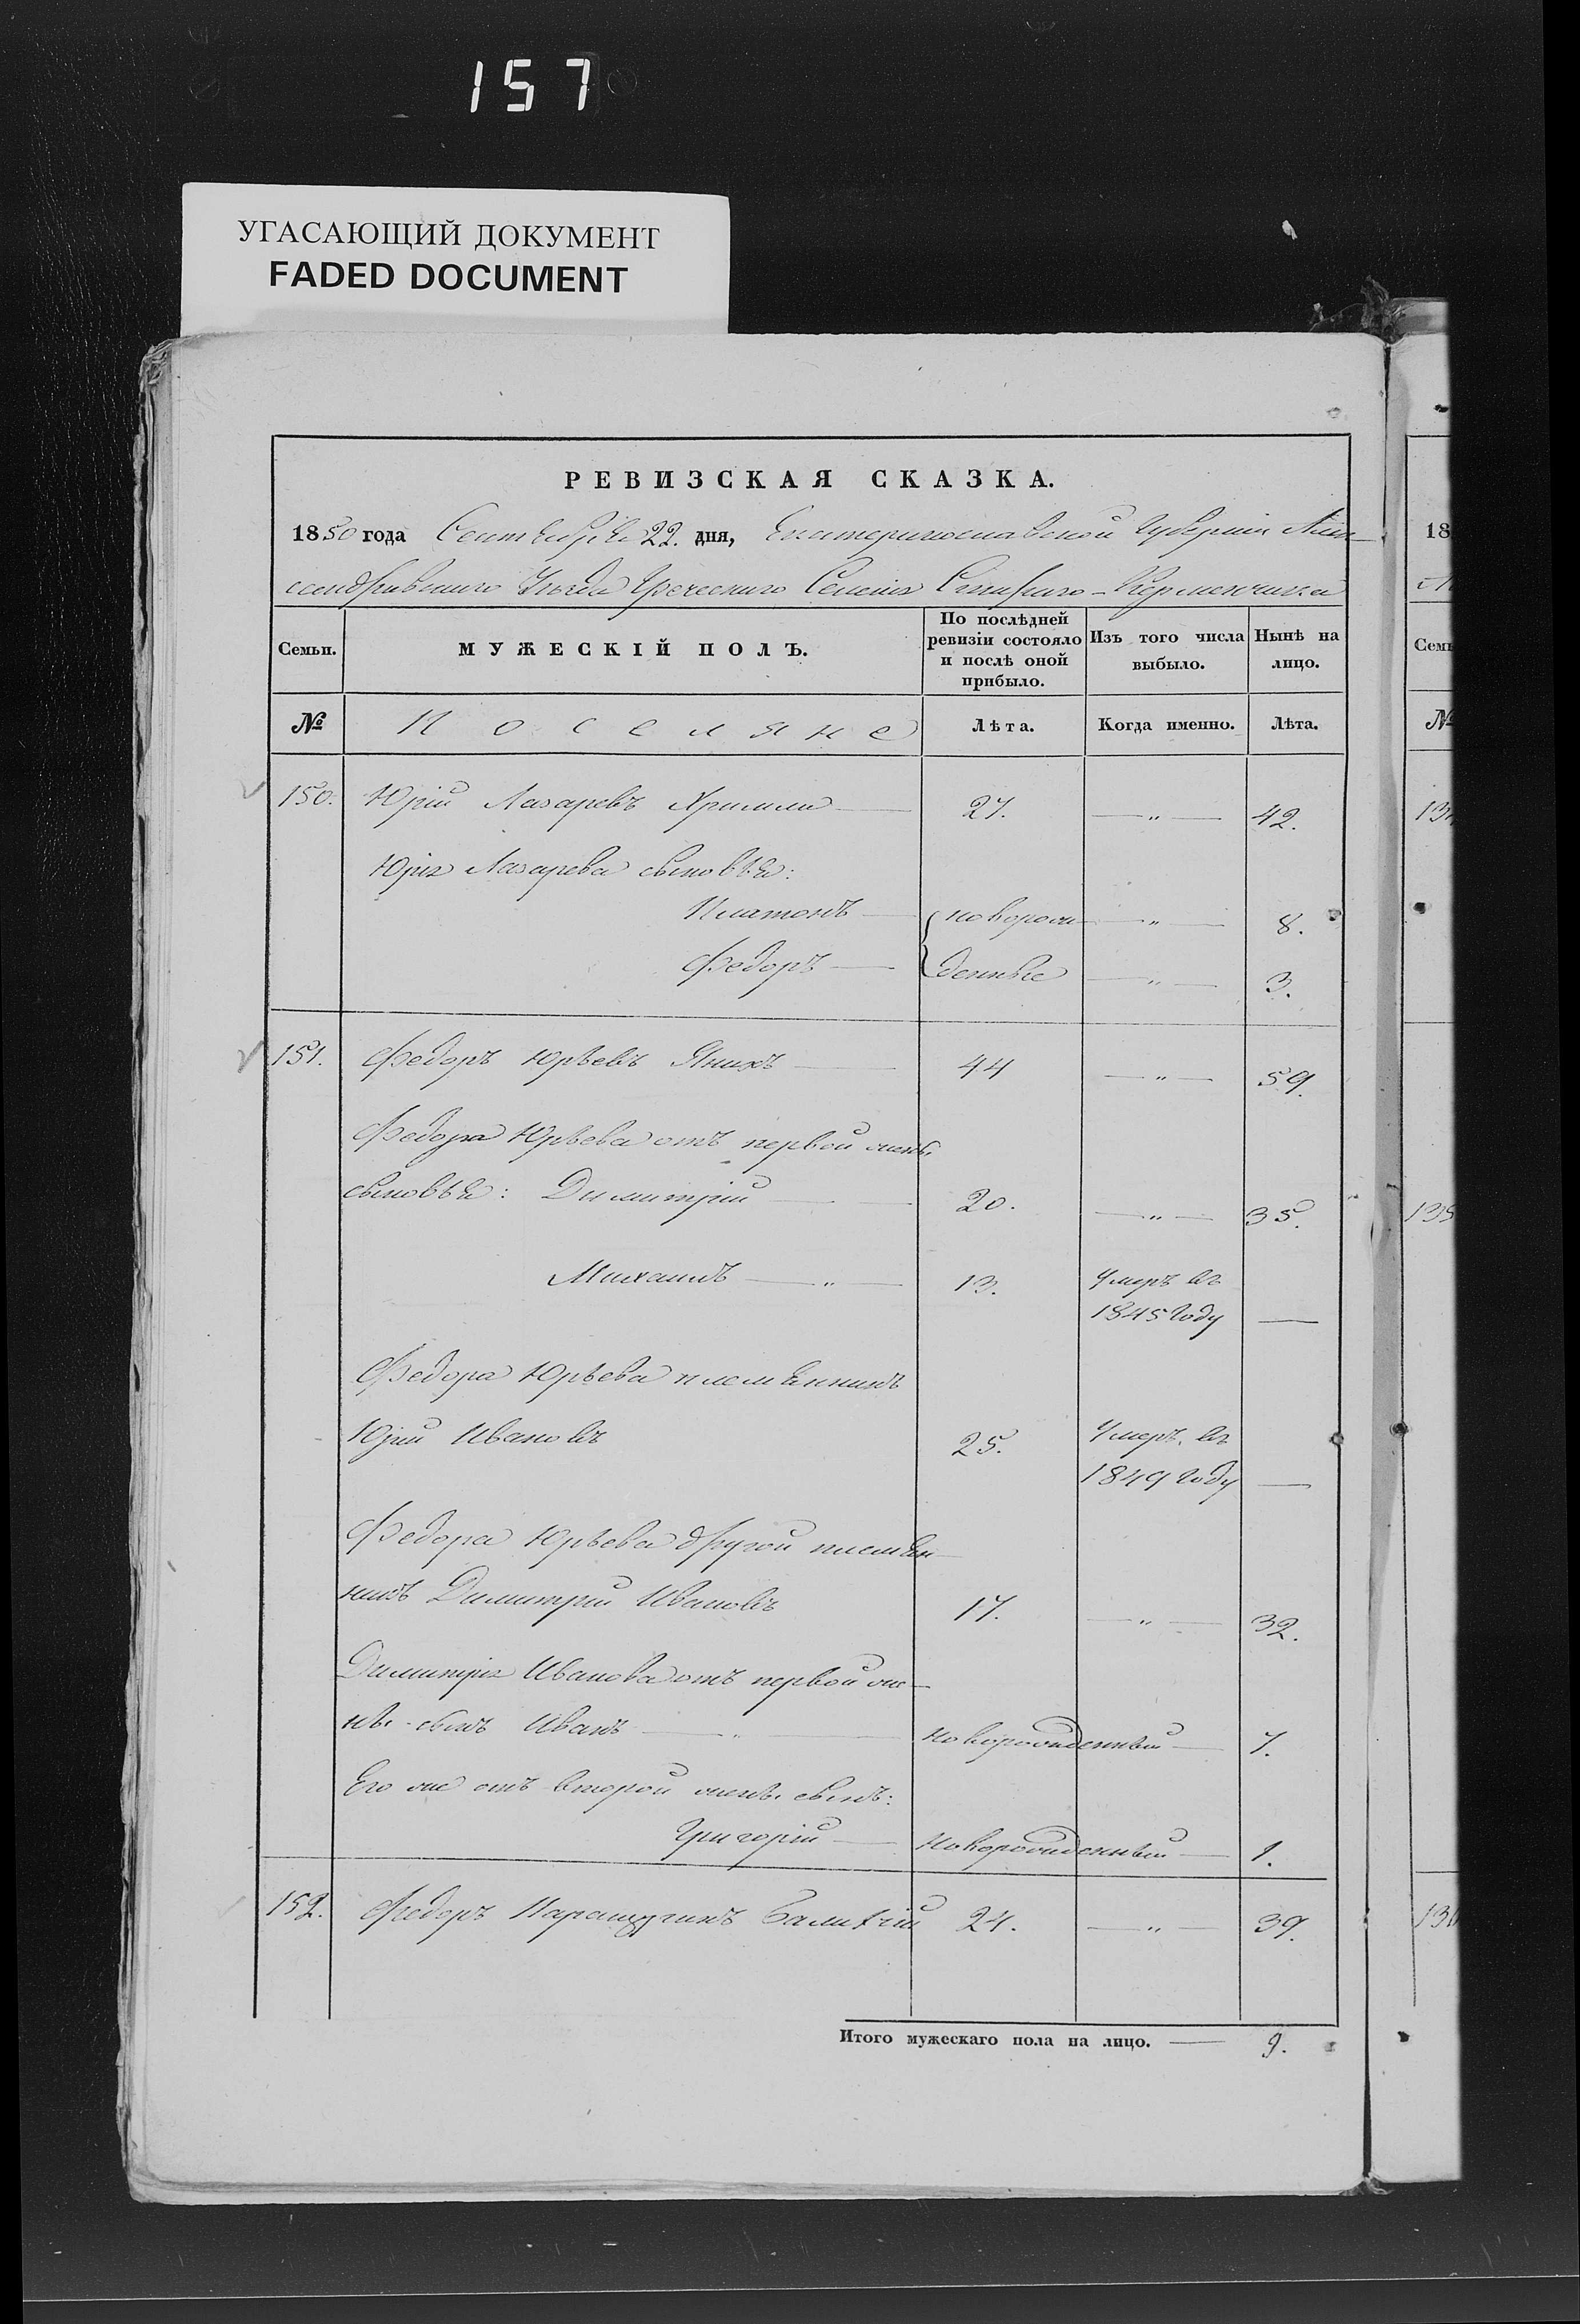 157
УГАСАЮЩИЙ ДОКУМЕНТ
FADED DOCUMENT
РЕВИЗСКАЯ СКАЗКА.
1850 года Сентября 22. дня, Екатеринославской Губерніи Алек-
сандровскаго Уѣзда Греческаго Селенія Стараго-Керменчика
Семьи. МУЖЕСКІЙ ПОЛЪ. По послѣдней ревизіи состояло и послѣ оной прибыло. Изъ того числа выбыло. Нынѣ на лицо.
№ Поселяне Лѣта. Когда именно. Лѣта.
150. Юрій Лазаревъ 27. — „ — 42.
Юрія Лазарева сыновья:
Платонъ — новорож- — „ — 8.
Федоръ — денные — „ — 3.
151. Федоръ Юрьевъ Янихъ — 44 — „ — 59.
Федора Юрьева отъ первой жены
сыновья: Димитрій — 20. — „ — 35.
Михаилъ — „ — 13. Умеръ въ
1845 году —
Федора Юрьева племянникъ
Юрій Ивановъ 25. Умеръ въ
1849 году —
Федора Юрьева другой племян-
никъ Димитрій Ивановъ 17. — „ — 32.
Димитрія Иванова отъ первой же-
ны сынъ Иванъ — „ — новорожденный — 7.
Его же отъ второй жены сынъ:
Григорій — новорожденный — 1.
152. Федоръ 24. — „ — 39.
Итого мужескаго пола на лицо. — 9.
18
Семь
№
134
135
136